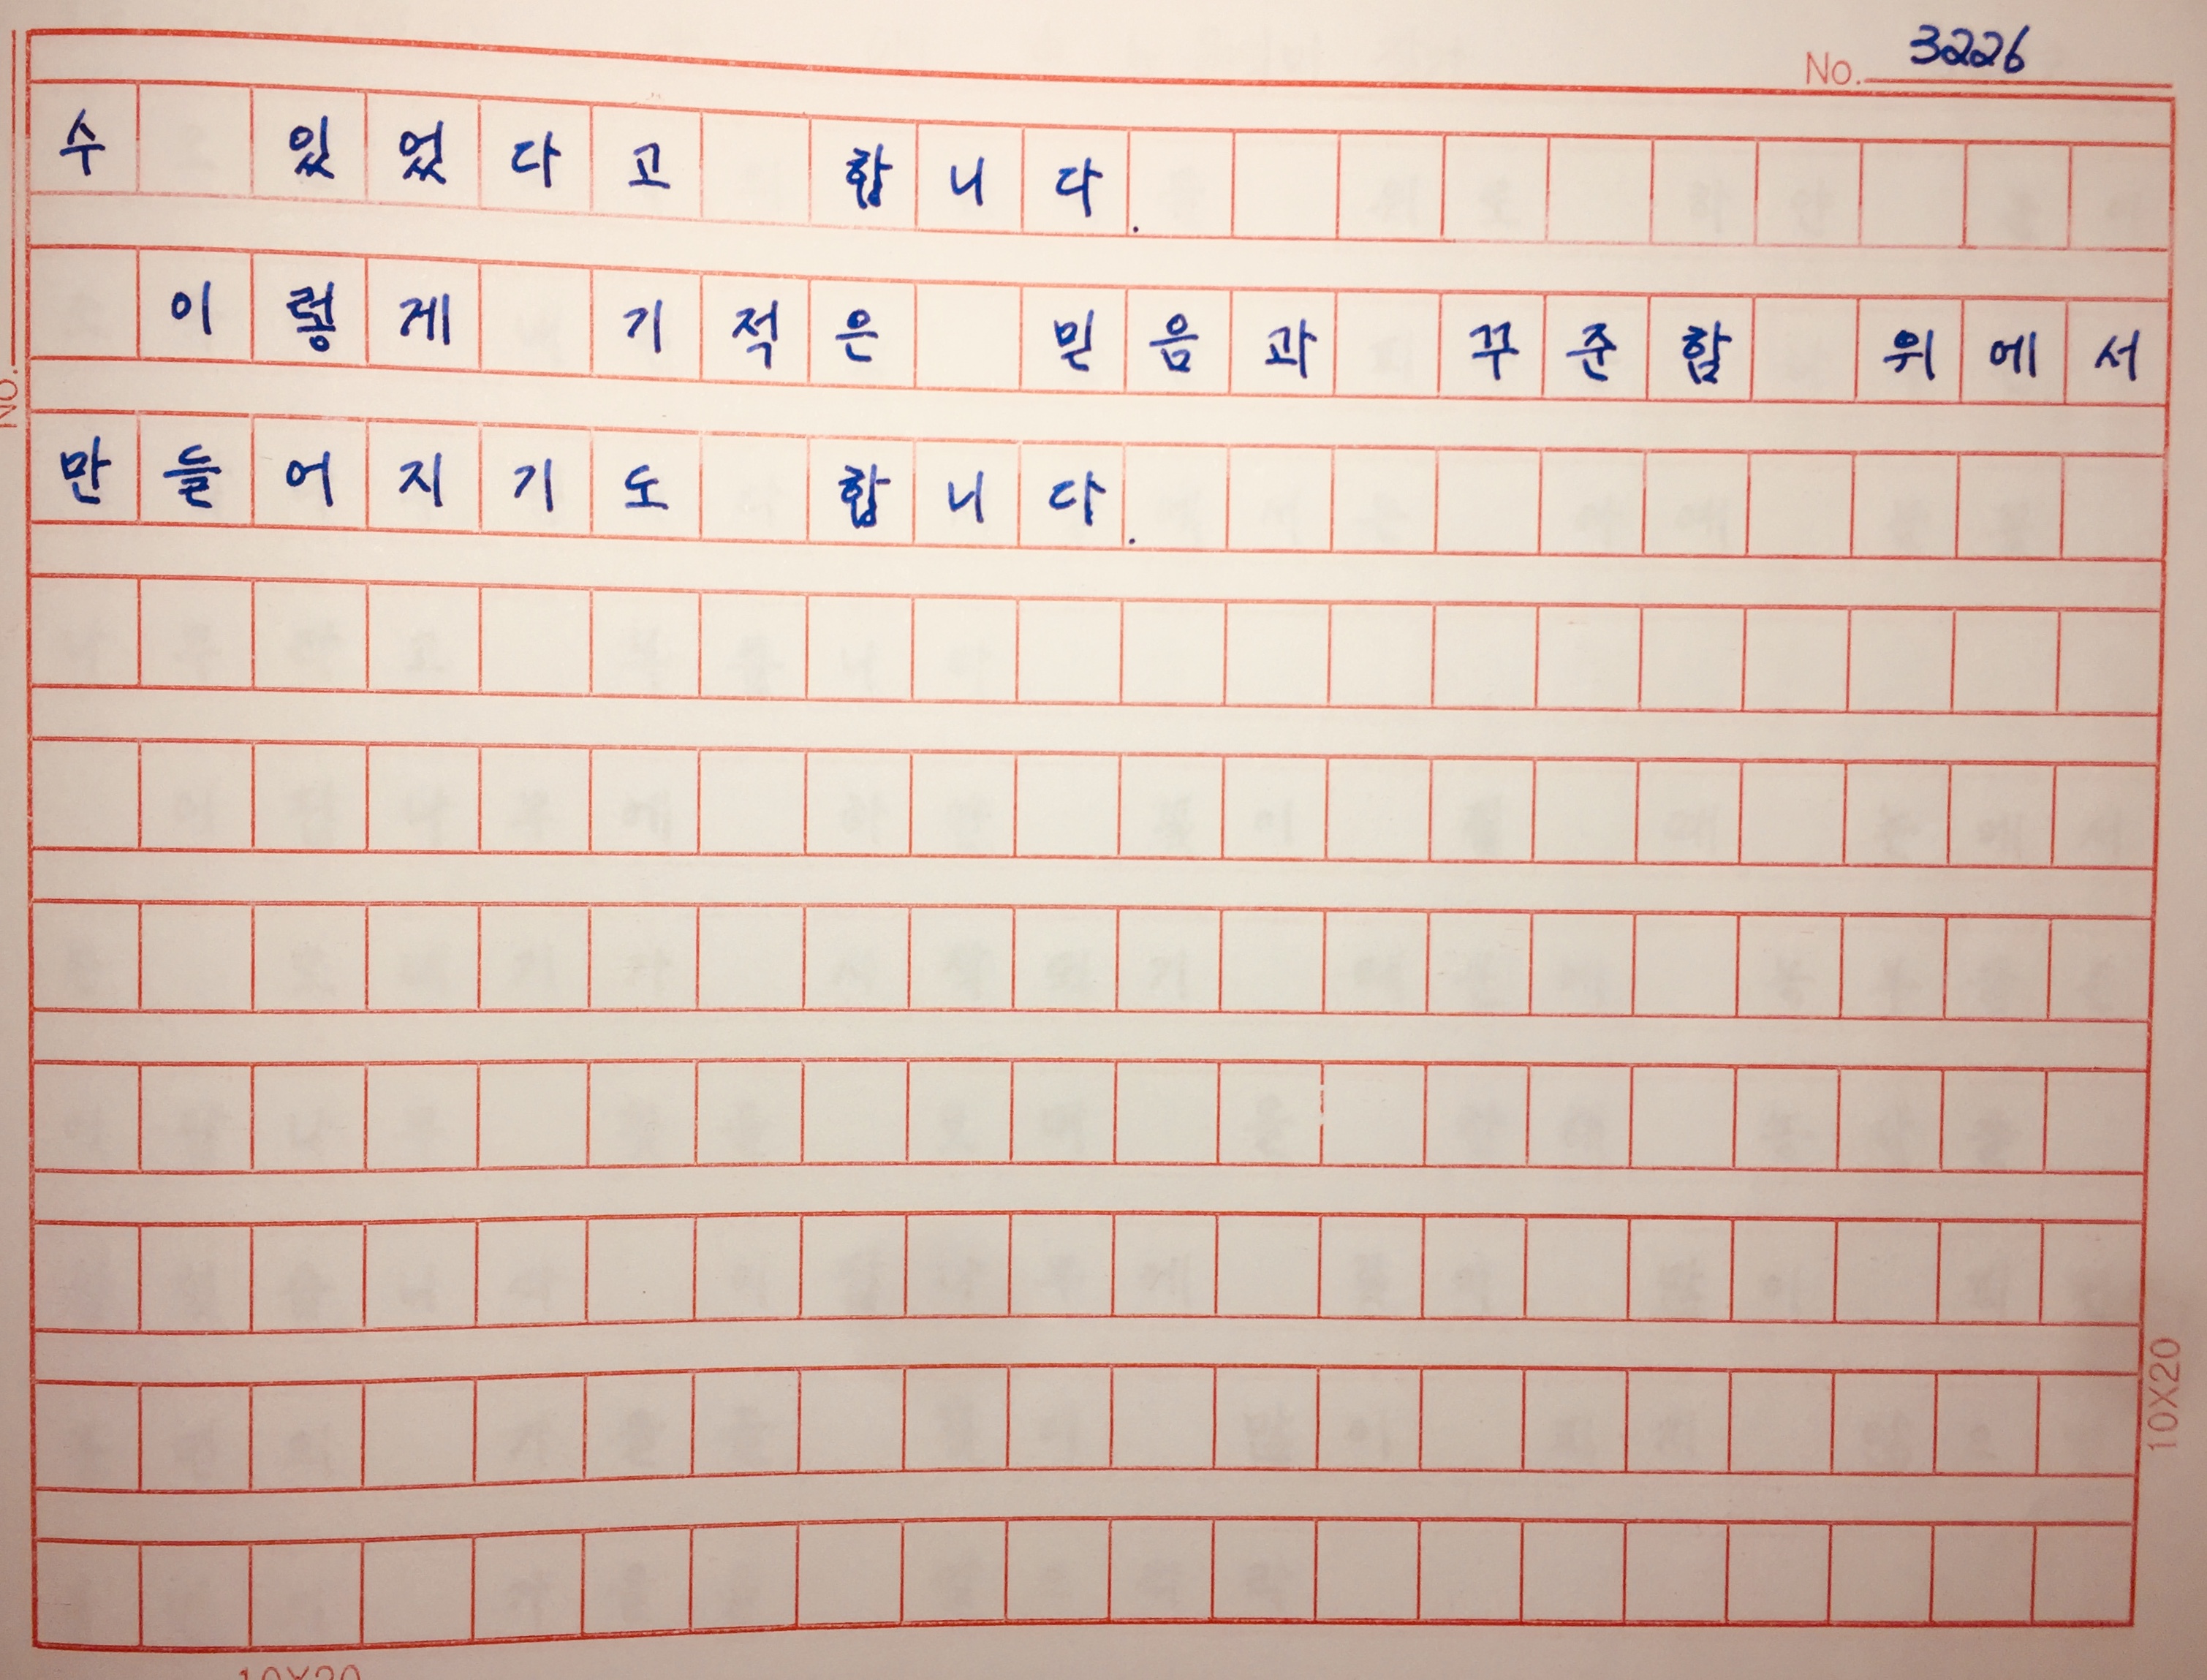 No. 3226
수 있었다고 합니다.
이렇게 기적은 믿음과 꾸준함 위에서
만들어지기도 합니다.
No.
10X20
10X20